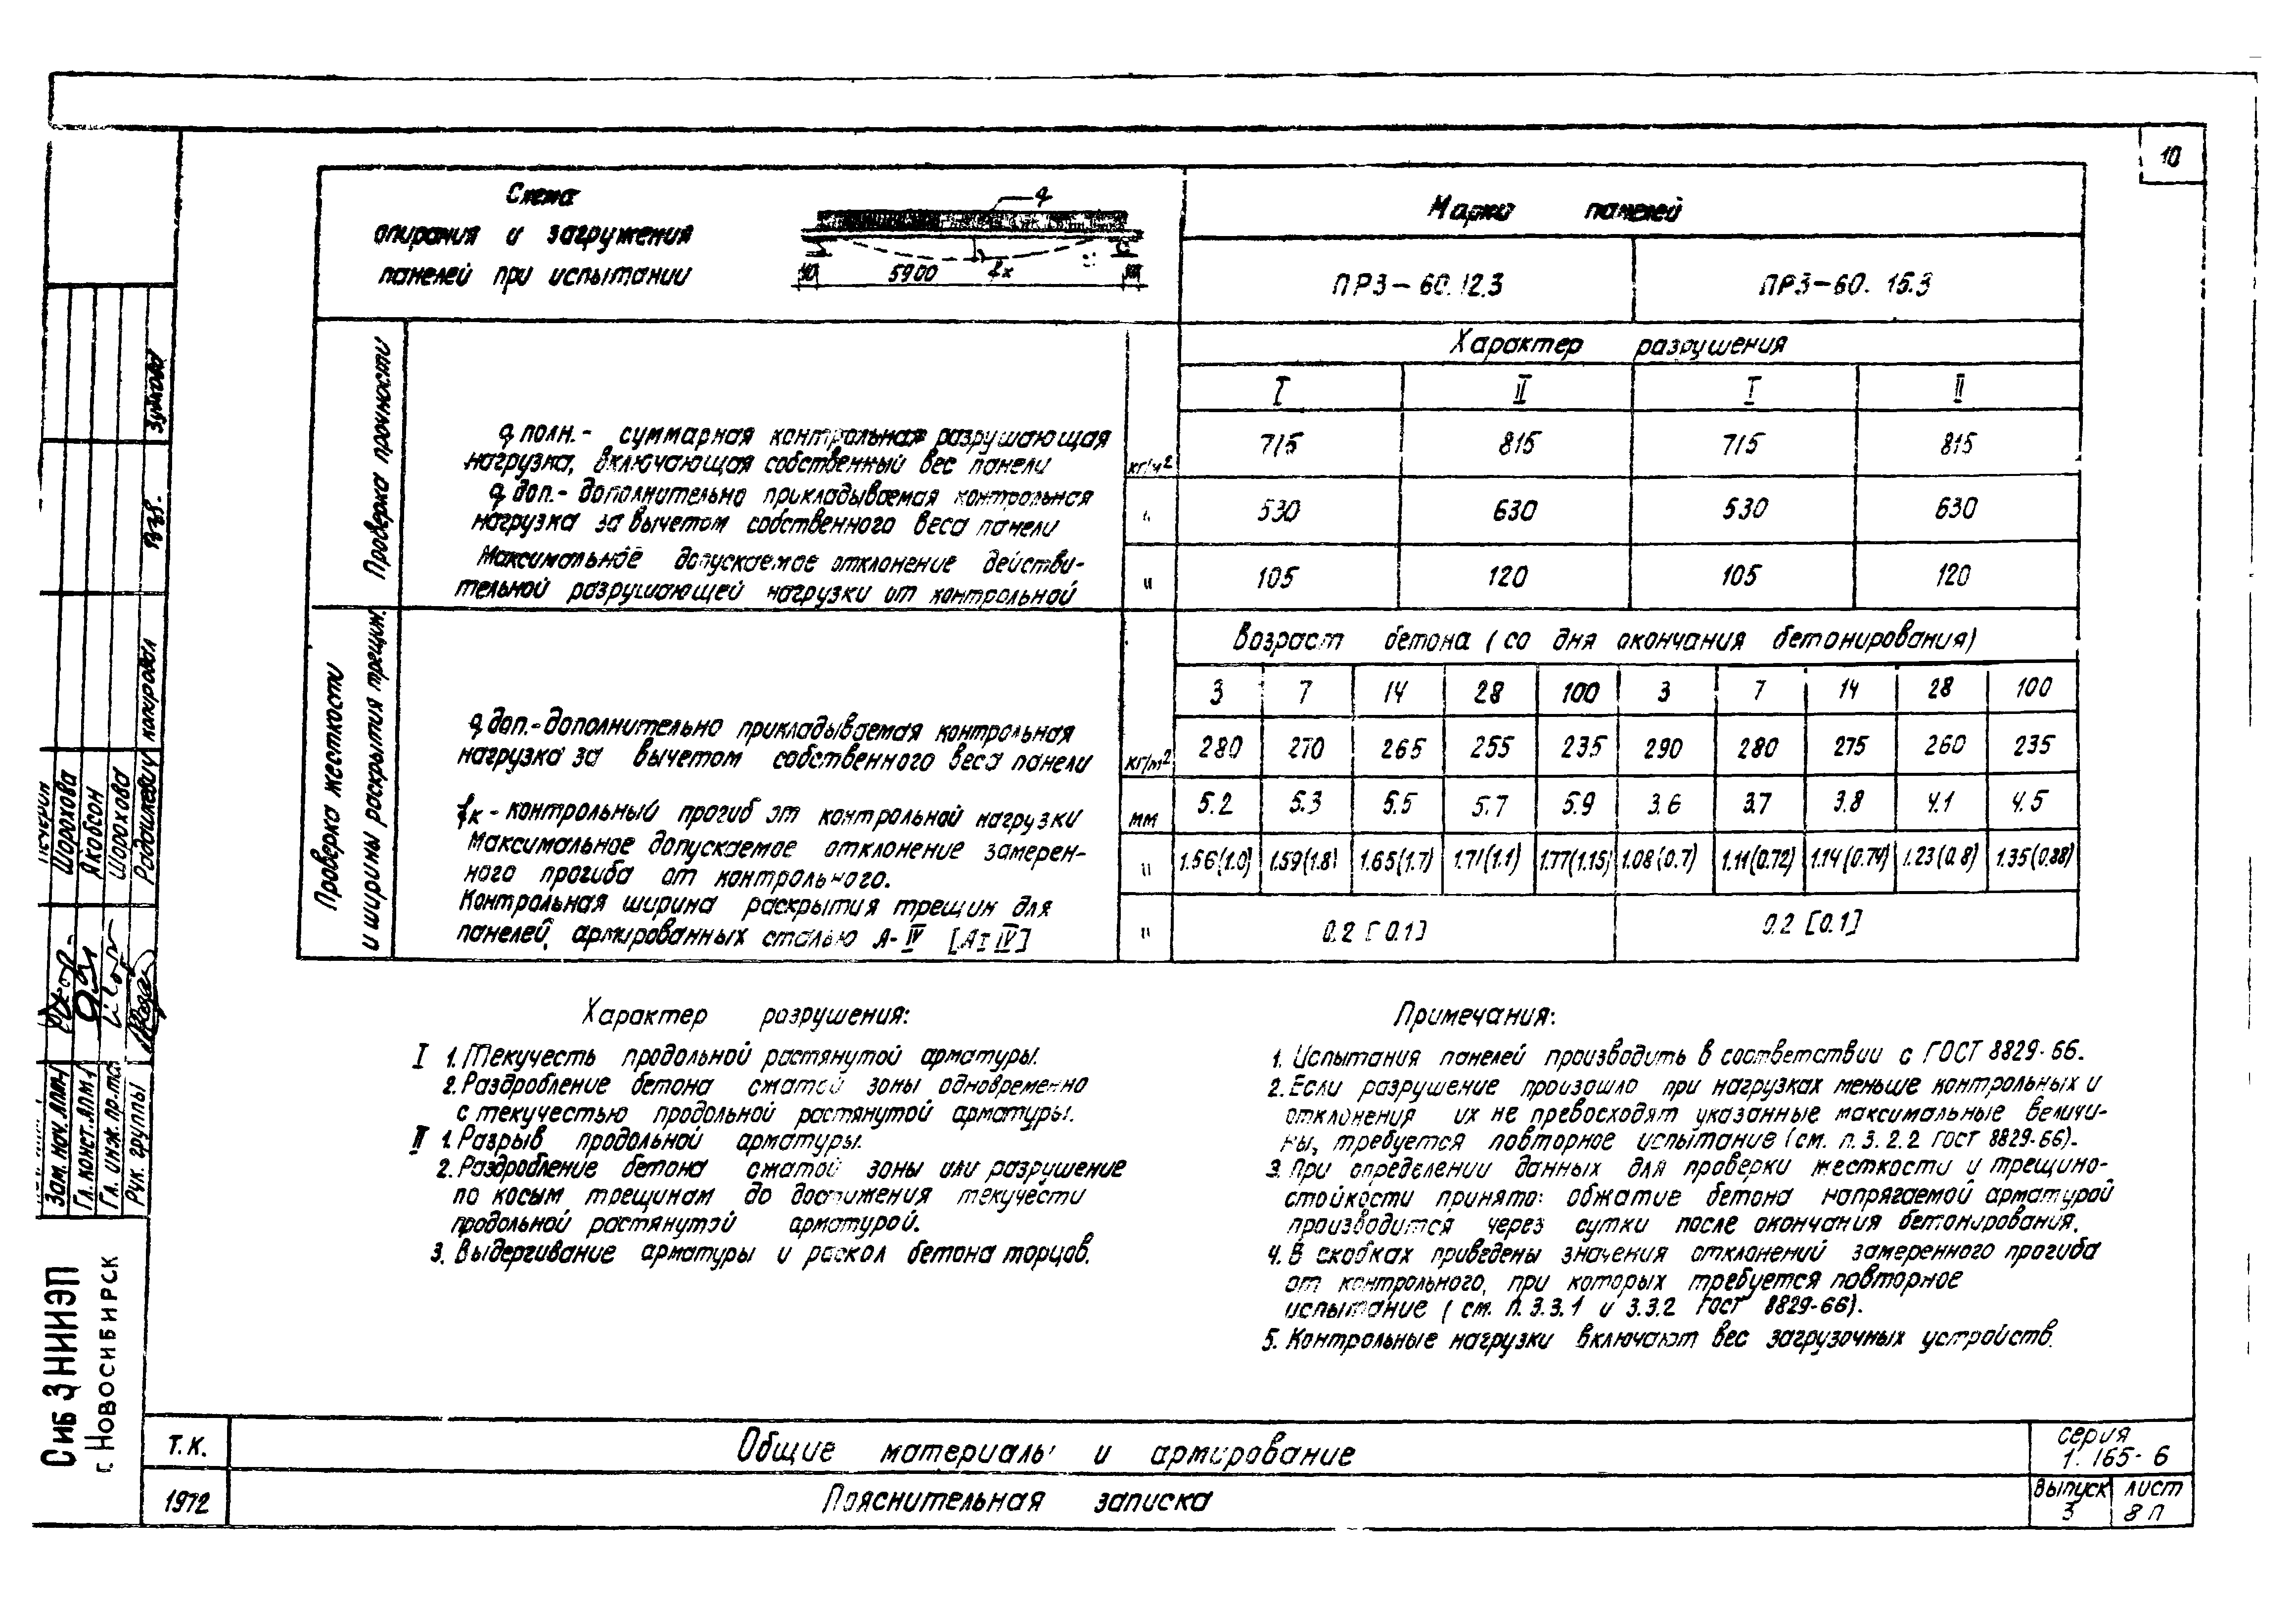 10
Схема
опирания и загружения
панелей при испытании
q
5900 fк
Марка панелей
ПР3-60.12.3 ПР3-60.15.3
Проверка прочности
Характер разрушения
I II I II
q полн. - суммарная контрольная разрушающая
нагрузка, включающая собственный вес панели
кг/м² 715 815 715 815
q доп. - дополнительно прикладываемая контрольная
нагрузка за вычетом собственного веса панели
" 530 630 530 630
Максимальное допускаемое отклонение действи-
тельной разрушающей нагрузки от контрольной
" 105 120 105 120
Проверка жесткости
и ширины раскрытия трещин.
Возраст бетона (со дня окончания бетонирования)
3 7 14 28 100 3 7 14 28 100
q доп. - дополнительно прикладываемая контрольная
нагрузка за вычетом собственного веса панели
кг/м² 280 270 265 255 235 290 280 275 260 235
fк - контрольный прогиб от контрольной нагрузки
мм 5.2 5.3 5.5 5.7 5.9 3.6 3.7 3.8 4.1 4.5
Максимальное допускаемое отклонение замерен-
ного прогиба от контрольного.
" 1.56(1.0) 1.59(1.8) 1.65(1.7) 1.71(1.1) 1.77(1.15) 1.08(0.7) 1.11(0.72) 1.14(0.74) 1.23(0.8) 1.35(0.88)
Контрольная ширина раскрытия трещин для
панелей, армированных сталью А-IV [Ат IV]
" 0.2 [0.1] 0.2 [0.1]
Характер разрушения:
I 1. Текучесть продольной растянутой арматуры.
2. Раздробление бетона сжатой зоны одновременно
с текучестью продольной растянутой арматуры.
II 1. Разрыв продольной арматуры.
2. Раздробление бетона сжатой зоны или разрушение
по косым трещинам до достижения текучести
продольной растянутой арматурой.
3. Выдергивание арматуры и раскол бетона торцов.
Примечания:
1. Испытания панелей производить в соответствии с ГОСТ 8829-66.
2. Если разрушение произошло при нагрузках меньше контрольных и
отклонения их не превосходят указанные максимальные величи-
ны, требуется повторное испытание (см. п. 3.2.2 ГОСТ 8829-66).
3. При определении данных для проверки жесткости и трещино-
стойкости принято: обжатие бетона напрягаемой арматурой
производится через сутки после окончания бетонирования.
4. В скобках приведены значения отклонений замеренного прогиба
от контрольного, при которых требуется повторное
испытание (см. п. 3.3.1 и 3.3.2 ГОСТ 8829-66).
5. Контрольные нагрузки включают вес загрузочных устройств.
Зам. нач. АПМ-1 Шорохова
Гл. конст. АПМ-1 Якобсон
Гл. инж. пр-та Шорохова
Рук. группы Радашкевич
копировал
Сиб ЗНИИЭП
г. Новосибирск
Т.К.
1972
Общие материалы и армирование
Пояснительная записка
серия
1.165-6
Выпуск
3
лист
8 П